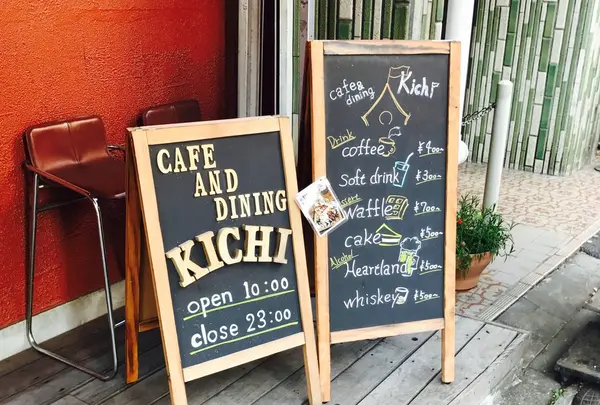 CAFE
AND
DINING
KICHI
open 10:00
close 23:00
cafe &
dining
Kichi
Drink
coffee ¥400
Soft drink ¥300
Dessert
Waffle ¥700
cake ¥500
Alcohol
Heartland ¥500
whiskey ¥500